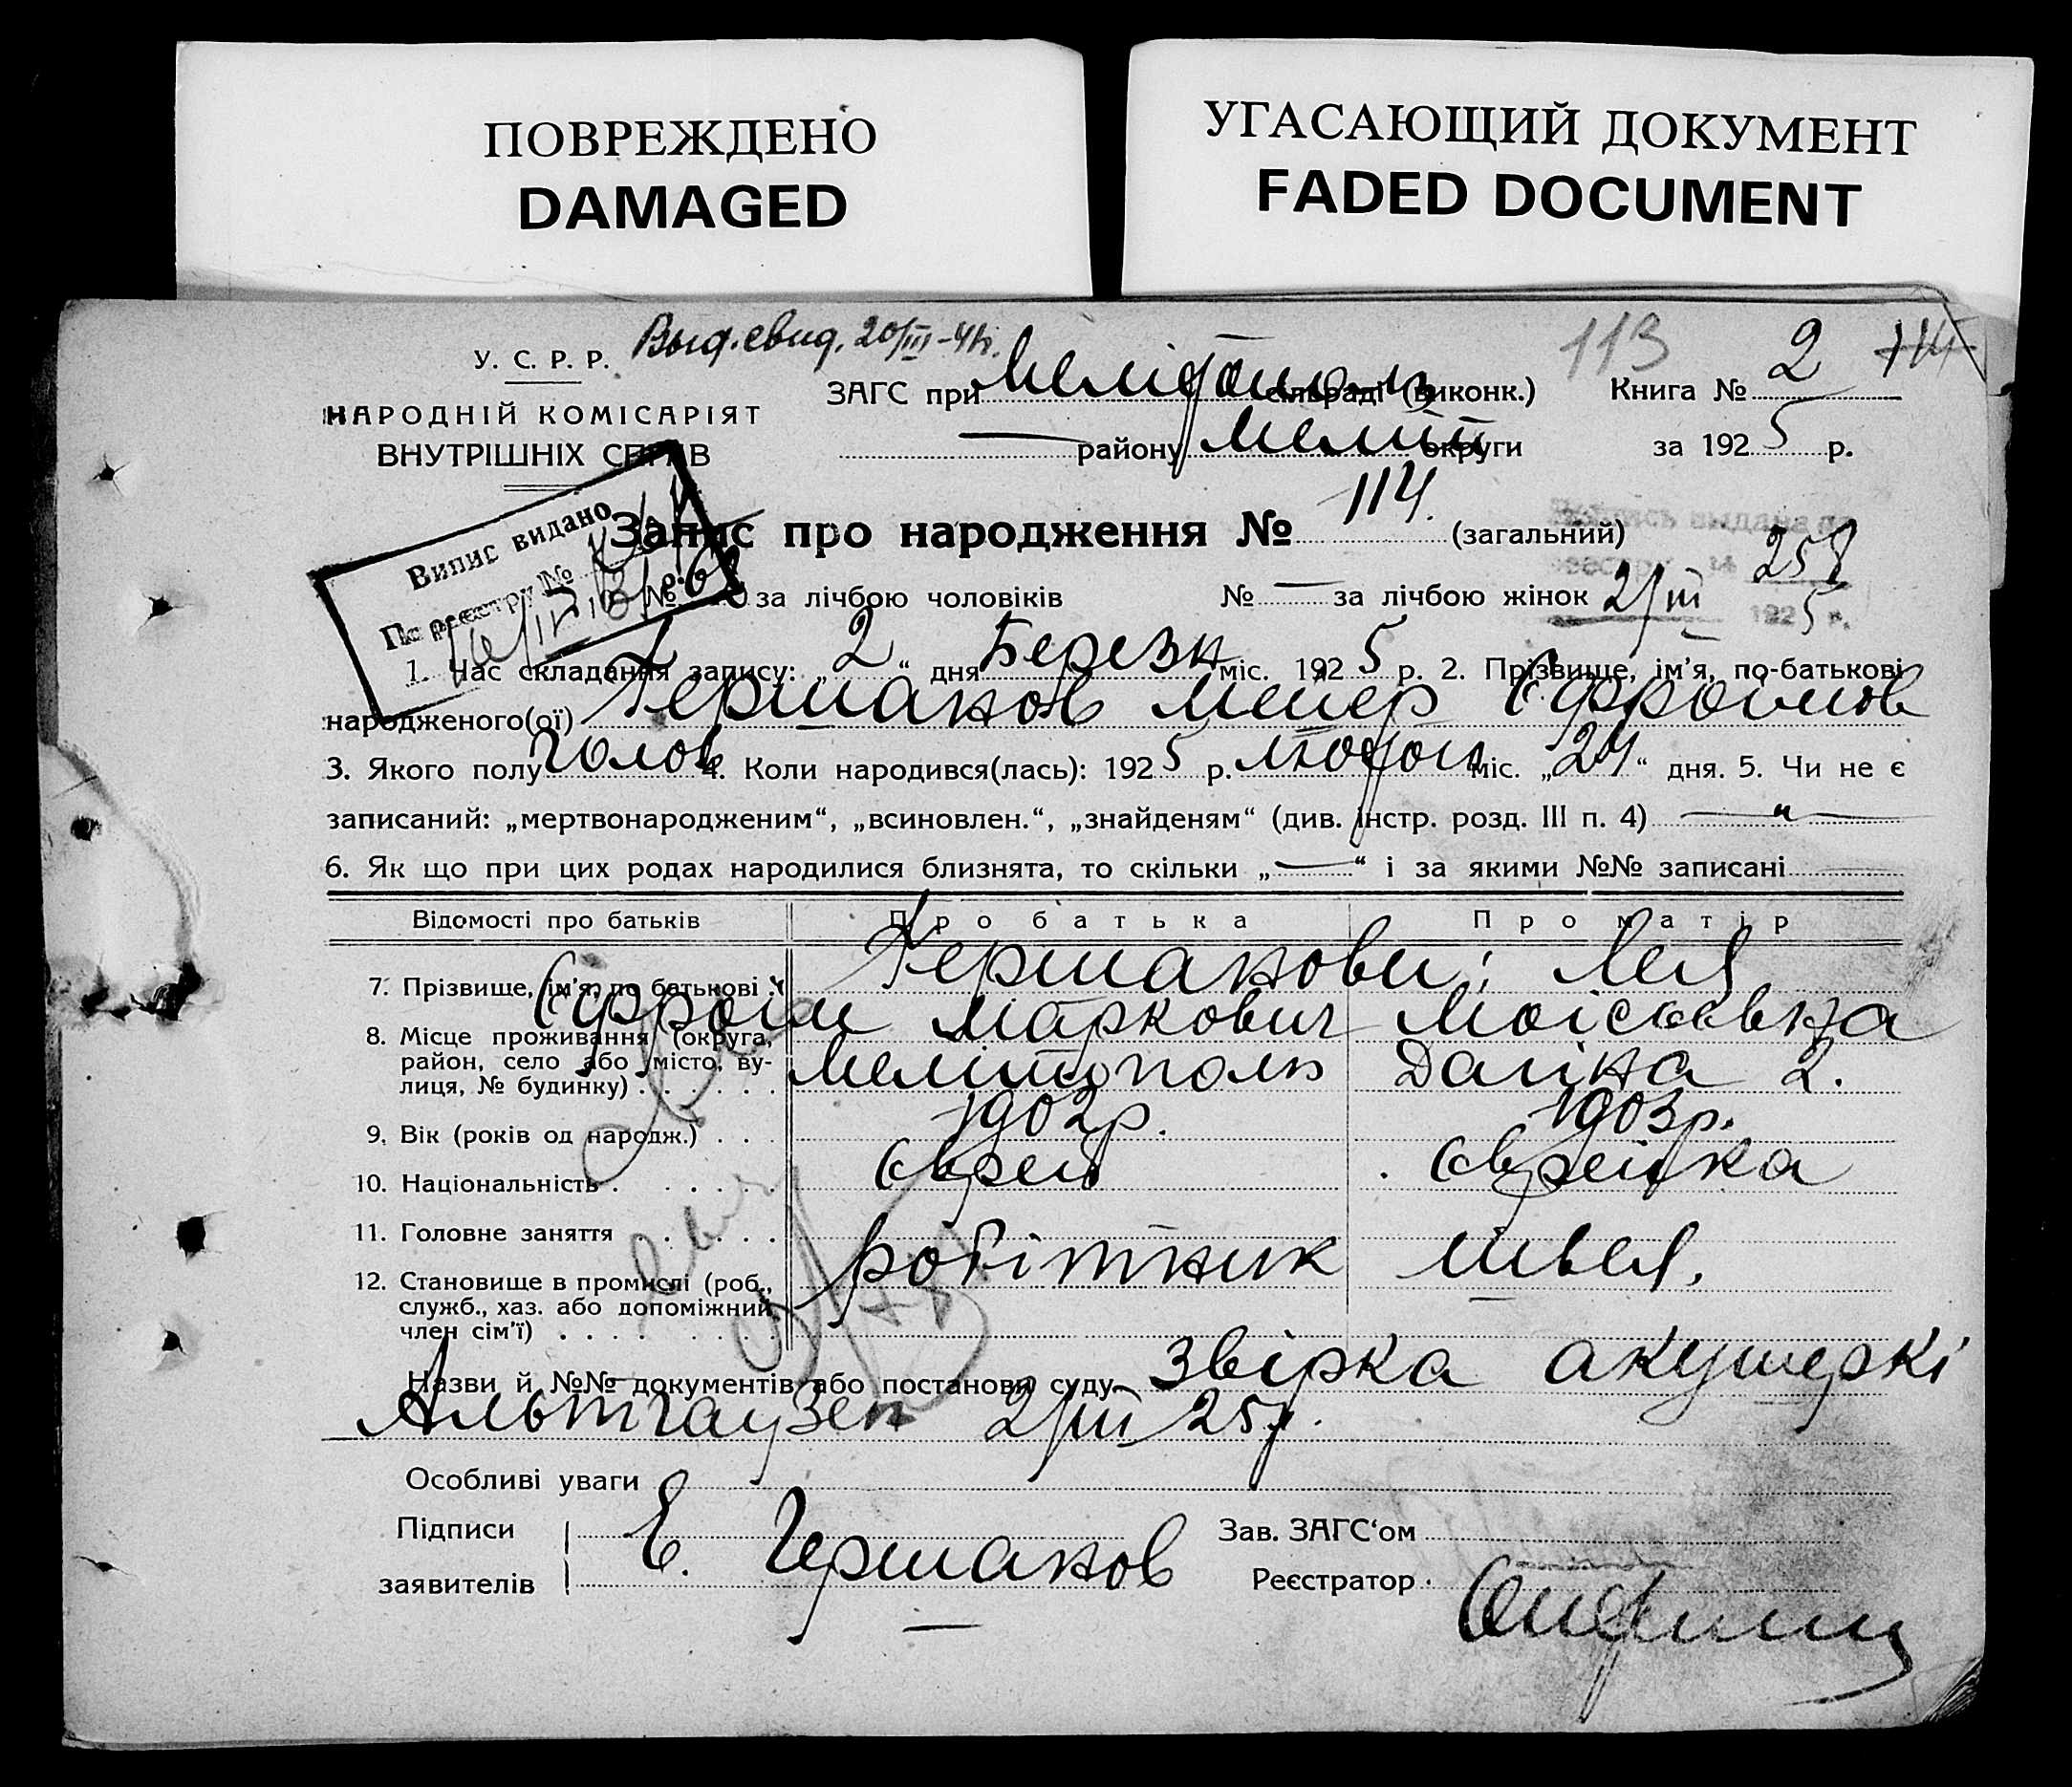 ПОВРЕЖДЕНО
DAMAGED
УГАСАЮЩИЙ ДОКУМЕНТ
FADED DOCUMENT
Выд. свид. 20/III-41г.
113
У. С. Р. Р.
НАРОДНІЙ КОМІСАРІЯТ
ВНУТРІШНІХ СПРАВ
ЗАГС при Мелітополь сільраді (виконк.) Книга № 2 114
— району Меліт округи за 1925 р.
Випис видано
По реєстру №
Запис про народження № 114. (загальний)
выдана
258
1925 р.
№ 62 за лічбою чоловіків № — за лічбою жінок 2/III
1. Час складання запису: „2“ дня Березн міс. 1925 р. 2. Прізвище, ім'я, по-батькові
народженого(ої) Гершанов Меєр Єфроімов
3. Якого полу Чолов 4. Коли народився(лась): 1925 р. Лютого міс. „24“ дня. 5. Чи не є
записаний: „мертвонародженим“, „всиновлен.“, „знайденям“ (див. інстр. розд. III п. 4) — „ —
6. Як що при цих родах народилися близнята, то скільки „—“ і за якими №№ записані
Відомості про батьків Про батька Про матір
Гершанови: Лея
7. Прізвище, ім'я, по батькові Єфроім Маркович Моісеєвна
8. Місце проживання (округа,
район, село або місто, ву-
лиця, № будинку) Мелітополь 2.
9. Вік (років од народж.) 1902р. 1903р.
10. Національність Єврей Єврейка
11. Головне заняття робітник швея.
12. Становище в промислі (роб.,
служб., хаз. або допоміжний
член сім'ї)
Назви й №№ документів або постанови суду Звірка акушеркі
Альтгаузен 2/III 25р.
Особливі уваги
Підписи Е. Гершанов Зав. ЗАГС'ом
заявителів Реєстратор